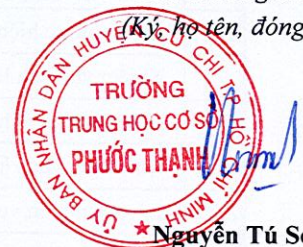 (Ký, họ tên, đóng
ỦY BAN NHÂN DÂN HUYỆN CỦ CHI T.P. HỒ CHÍ MINH
TRƯỜNG
TRUNG HỌC CƠ SỞ
PHƯỚC THẠNH
★
Nguyễn Tú